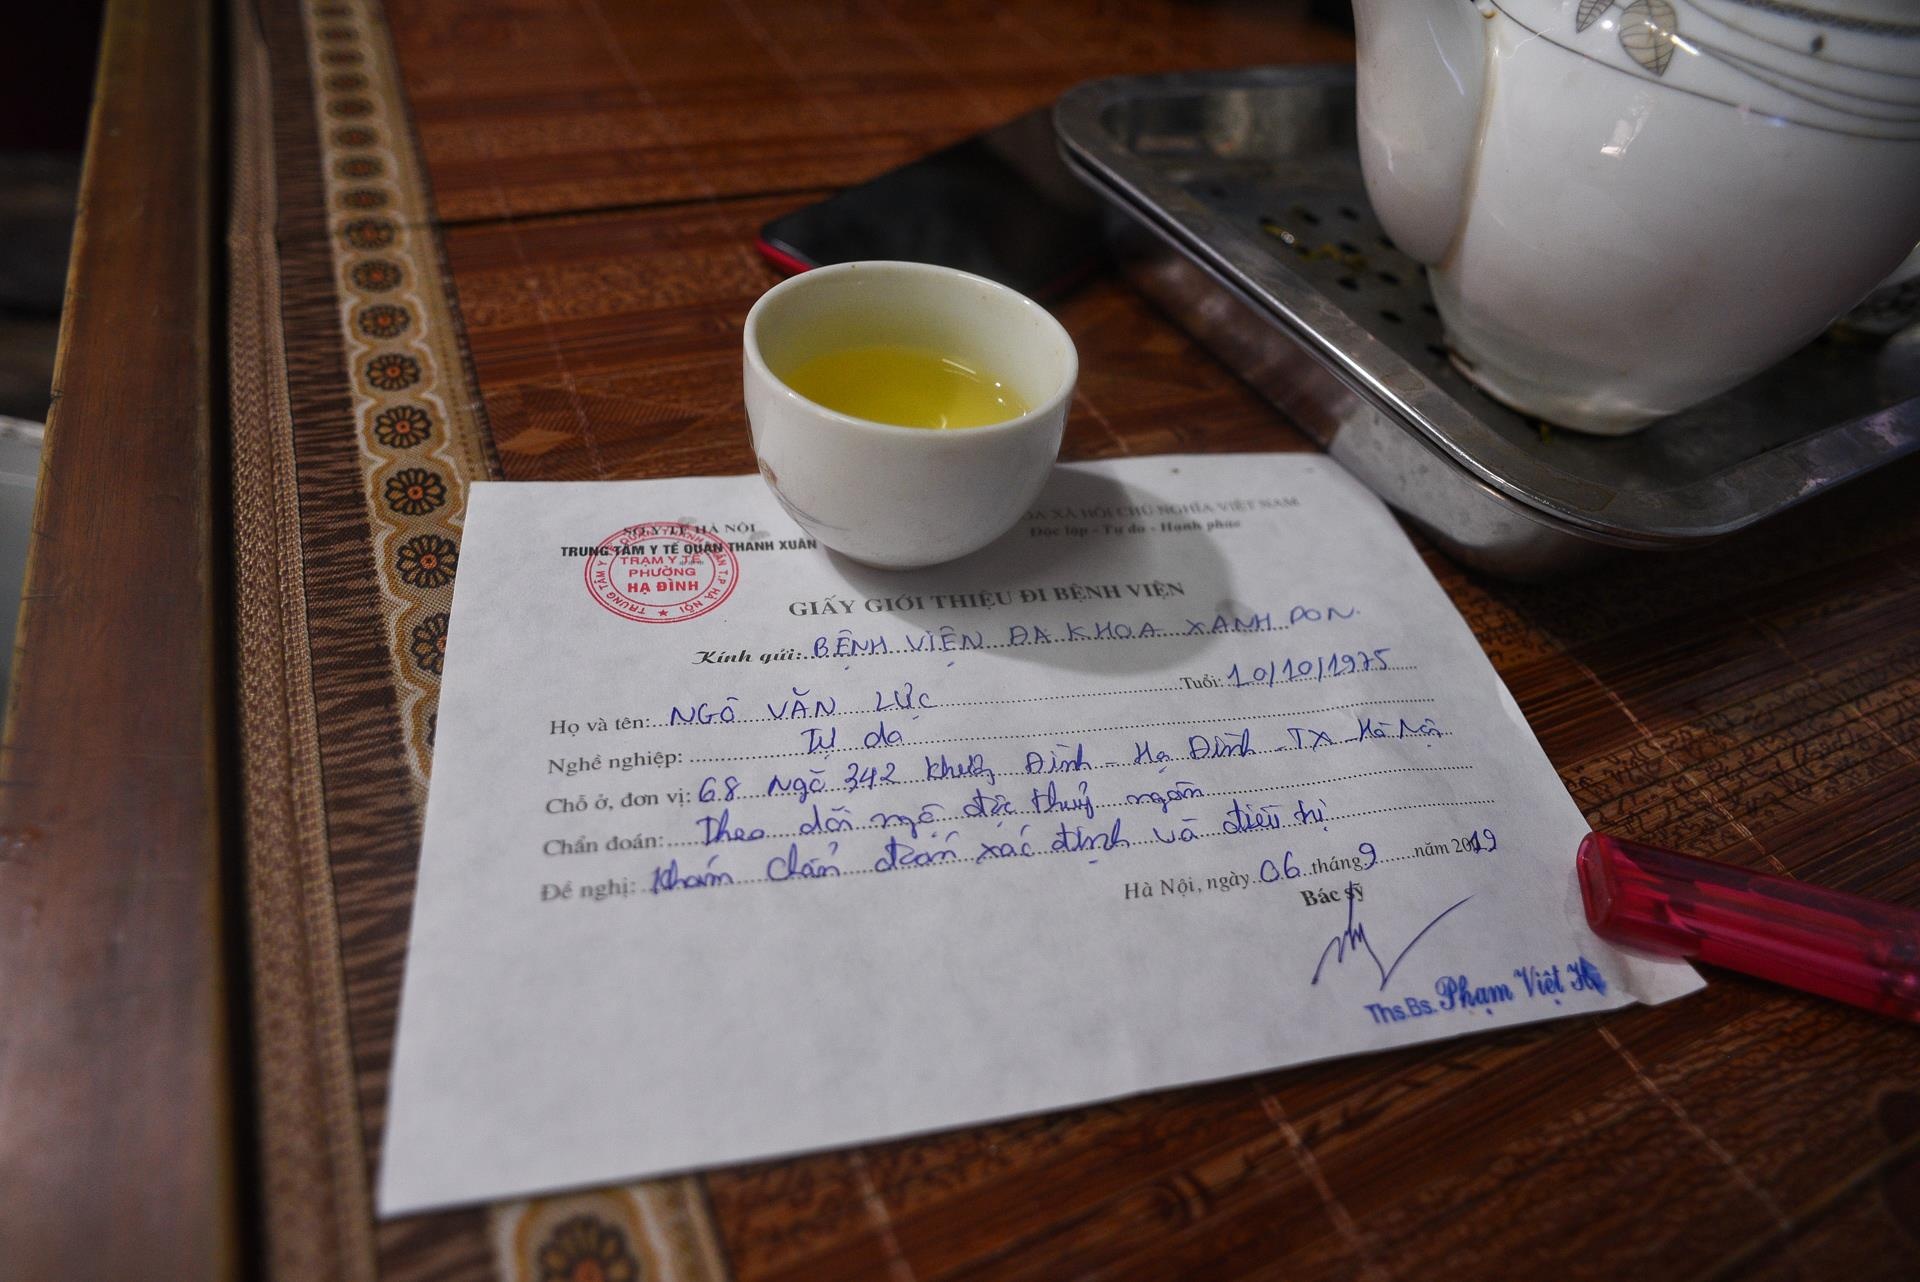 SỞ Y TẾ HÀ NỘI
TRUNG TÂM Y TẾ QUẬN THANH XUÂN
XÃ HỘI CHỦ NGHĨA VIỆT NAM
Độc lập - Tự do - Hạnh phúc
TRUNG TÂM Y TẾ QUẬN THANH XUÂN T.P HÀ NỘI
TRẠM Y TẾ
PHƯỜNG
HẠ ĐÌNH
GIẤY GIỚI THIỆU ĐI BỆNH VIỆN
Kính gửi: BỆNH VIỆN ĐA KHOA XANH PON.
Họ và tên: NGÔ VĂN LỰC Tuổi: 10/10/1975
Nghề nghiệp: Tự do
Chỗ ở, đơn vị: 68 Ngõ 342 Khương Đình - Hạ Đình - TX - Hà Nội
Chẩn đoán: Theo dõi ngộ độc thuỷ ngân
Đề nghị: Khám chẩn đoán xác định và điều trị
Hà Nội, ngày 06 tháng 9 năm 2019
Bác sỹ
Ths.Bs. Phạm Việt